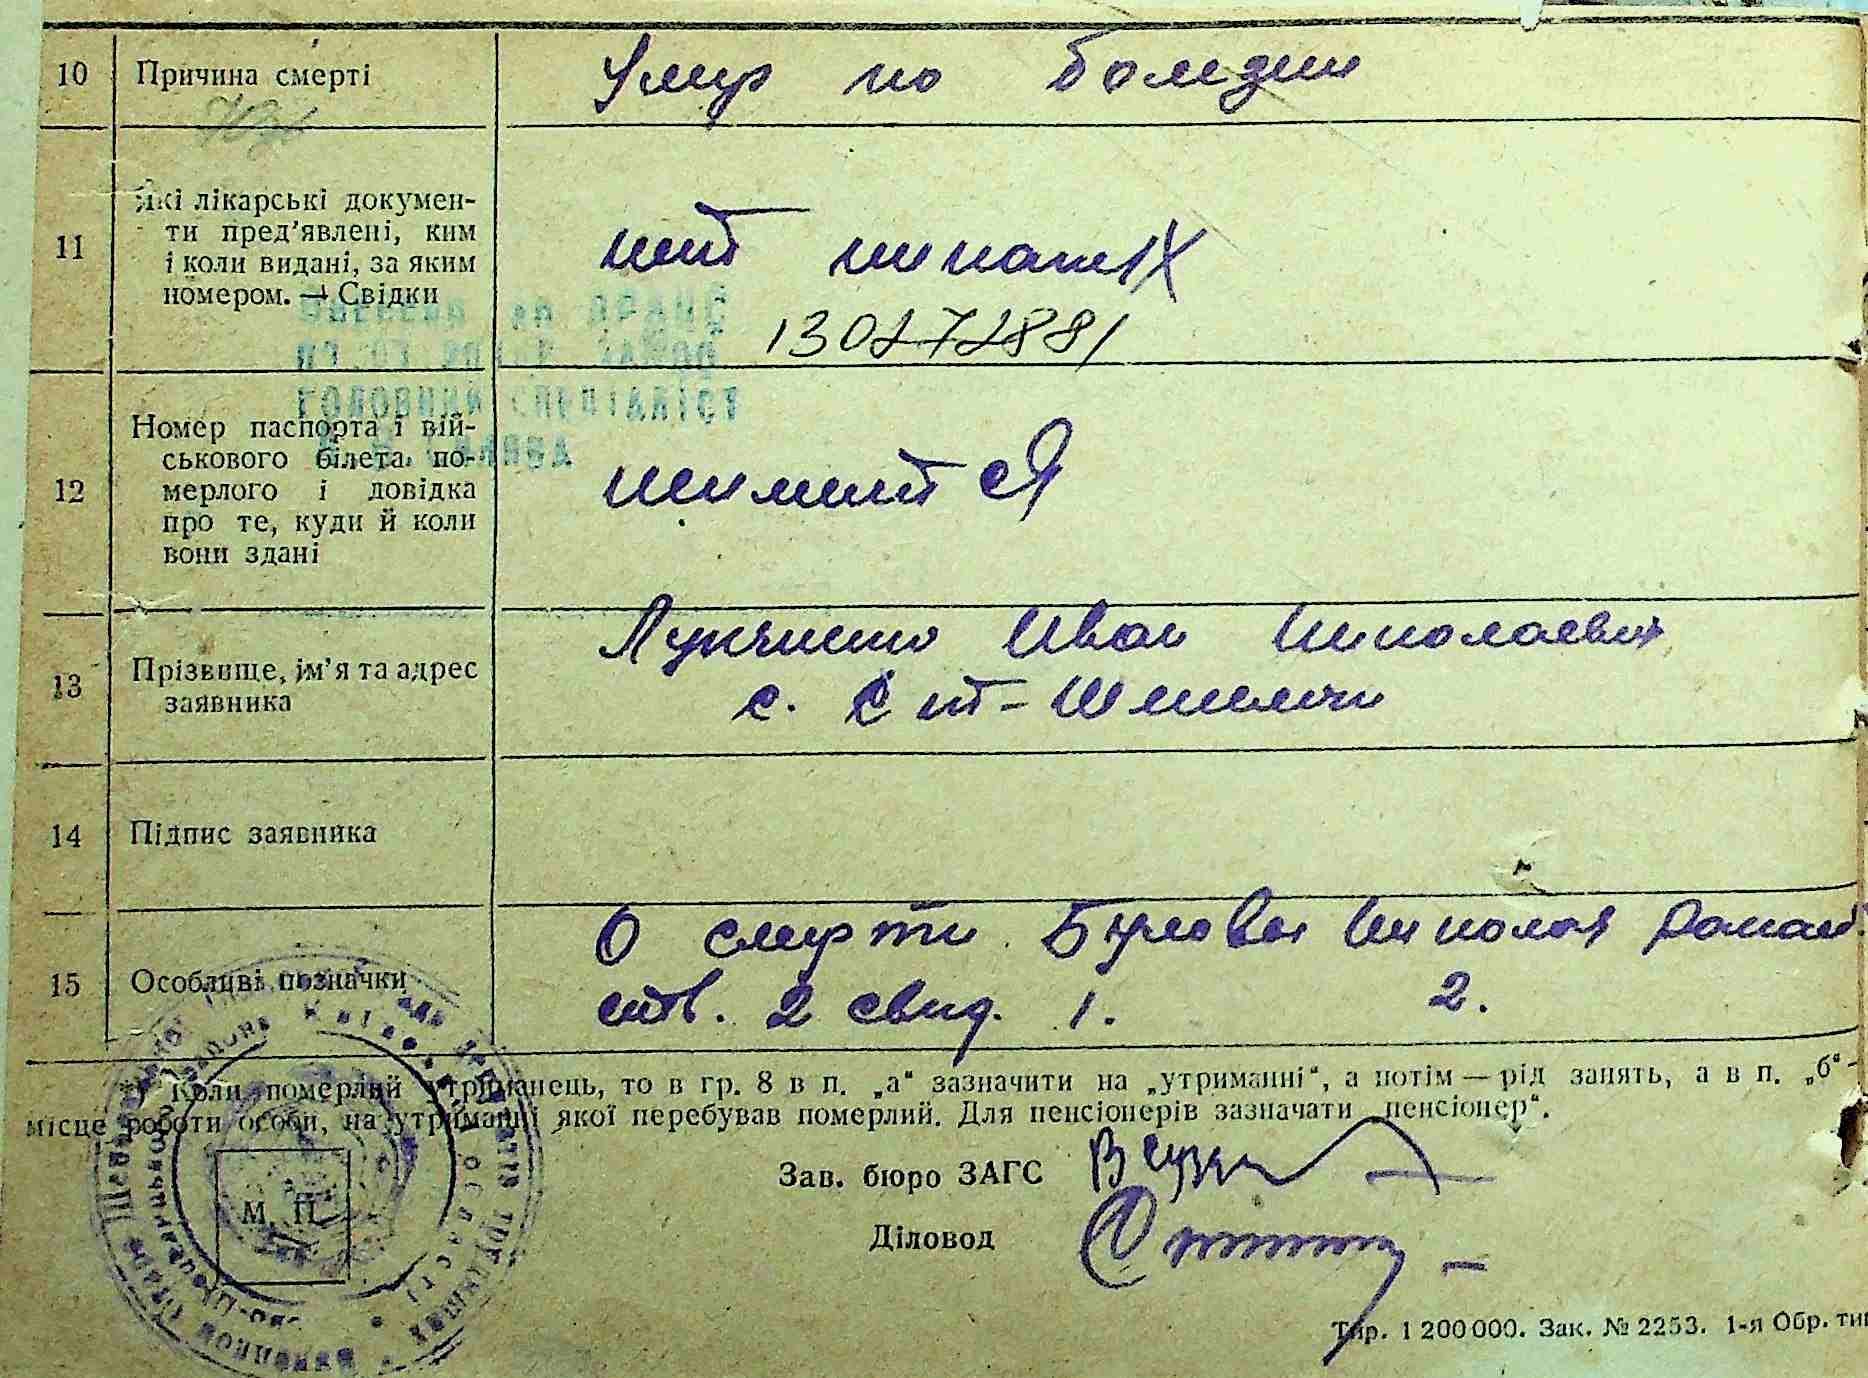 10 Причина смерті Умер по болезни
11 Які лікарські докумен-
ти пред'явлені, ким
і коли видані, за яким
номером. — Свідки
нет никаких
130272881
12 Номер паспорта і вій-
ськового білета по-
мерлого і довідка
про те, куди й коли
вони здані
не имеется
13 Прізвище, ім'я та адрес
заявника
Иван Николаевич
с. Шепеличи
14 Підпис заявника
15 Особливі позначки
О смерти Николая Роман.
2 свид. 1. 2.
*) Коли померлий утриманець, то в гр. 8 в п. „а“ зазначити на „утриманні“, а потім — рід занять, а в п. „б“ -
місце роботи особи, на утриманні якої перебував померлий. Для пенсіонерів зазначати „пенсіонер“.
Зав. бюро ЗАГС
М. П.
Діловод
Тир. 1 200 000. Зак. № 2253. 1-я Обр. тип